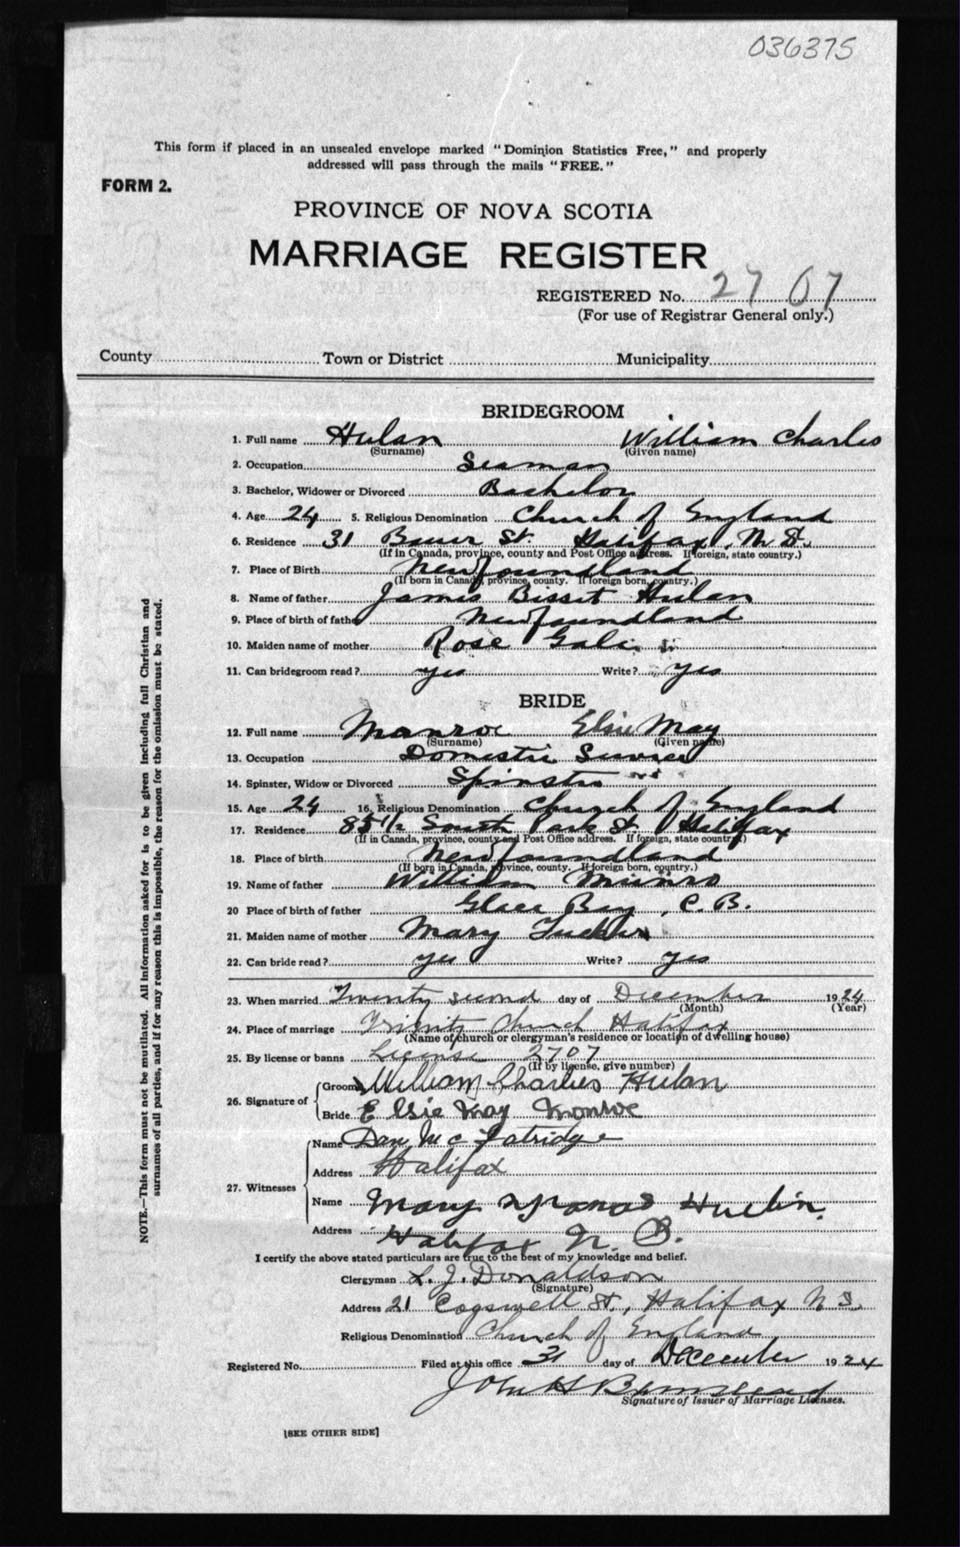 036375
This form if placed in an unsealed envelope marked "Dominion Statistics Free," and properly
addressed will pass through the mails "FREE."
FORM 2.
PROVINCE OF NOVA SCOTIA
MARRIAGE REGISTER
REGISTERED No. 2707
(For use of Registrar General only.)
County Town or District Municipality
BRIDEGROOM
1. Full name Hulan William Charles
(Surname) (Given name)
2. Occupation Seaman
3. Bachelor, Widower or Divorced Bachelor
4. Age 24 5. Religious Denomination Church of England
6. Residence 31 Bauer St. Halifax, N.S.
(If in Canada, province, county and Post Office address. If foreign, state country.)
7. Place of Birth Newfoundland
(If born in Canada, province, county. If foreign born, country.)
8. Name of father James Bissit Hulan
9. Place of birth of father Newfoundland
10. Maiden name of mother Rose
11. Can bridegroom read? yes Write? yes
BRIDE
12. Full name Monroe Elsie May
(Surname) (Given name)
13. Occupation Domestic
14. Spinster, Widow or Divorced Spinster
15. Age 24 16. Religious Denomination Church of England
17. Residence 85 1/2 South Park St. Halifax
(If in Canada, province, county and Post Office address. If foreign, state country.)
18. Place of birth Newfoundland
(If born in Canada, province, county. If foreign born, country.)
19. Name of father William Munro
20 Place of birth of father Glace Bay, C.B.
21. Maiden name of mother Mary Tucker
22. Can bride read? yes Write? yes
23. When married Twenty second day of December 1924
(Month) (Year)
24. Place of marriage Trinity Church Halifax
(Name of church or clergyman's residence or location of dwelling house)
25. By license or banns License 2707
(If by license, give number)
26. Signature of
Groom William Charles Hulan
Bride Elsie May Monroe
27. Witnesses
Name Dan Mc Fatridge
Address Halifax
Name Mary Hulin.
Address Halifax N. S.
I certify the above stated particulars are true to the best of my knowledge and belief.
Clergyman L. J. Donaldson
(Signature)
Address 21 Cogswell St., Halifax N S.
Religious Denomination Church of England
Registered No. Filed at this office 31 day of December 1924
John H Barnstead
Signature of Issuer of Marriage Licenses.
[SEE OTHER SIDE]
NOTE.—This form must not be mutilated. All information asked for is to be given including full Christian and
surnames of all parties, and if for any reason this is impossible, the reason for the omission must be stated.